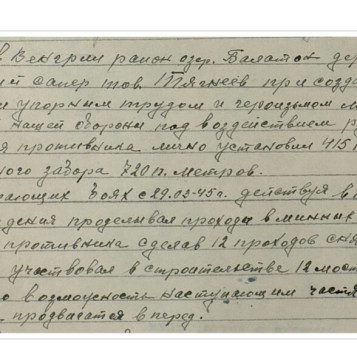 в Венгрии район озер. Балатон дер
ий сапер тов. Тягнеев при созда
и упорным трудом и героизмом м
нашей обороны под воздействием р
я противника лично установил 415
ного забора 720 п. метров.
ающих боях с 29.03-45г. действуя в
дения проделывал проходы в минных
противника сделав 12 проходов сня
участвовал в строительстве 12 мост
о возможность наступающим частя
продвигатся вперед.